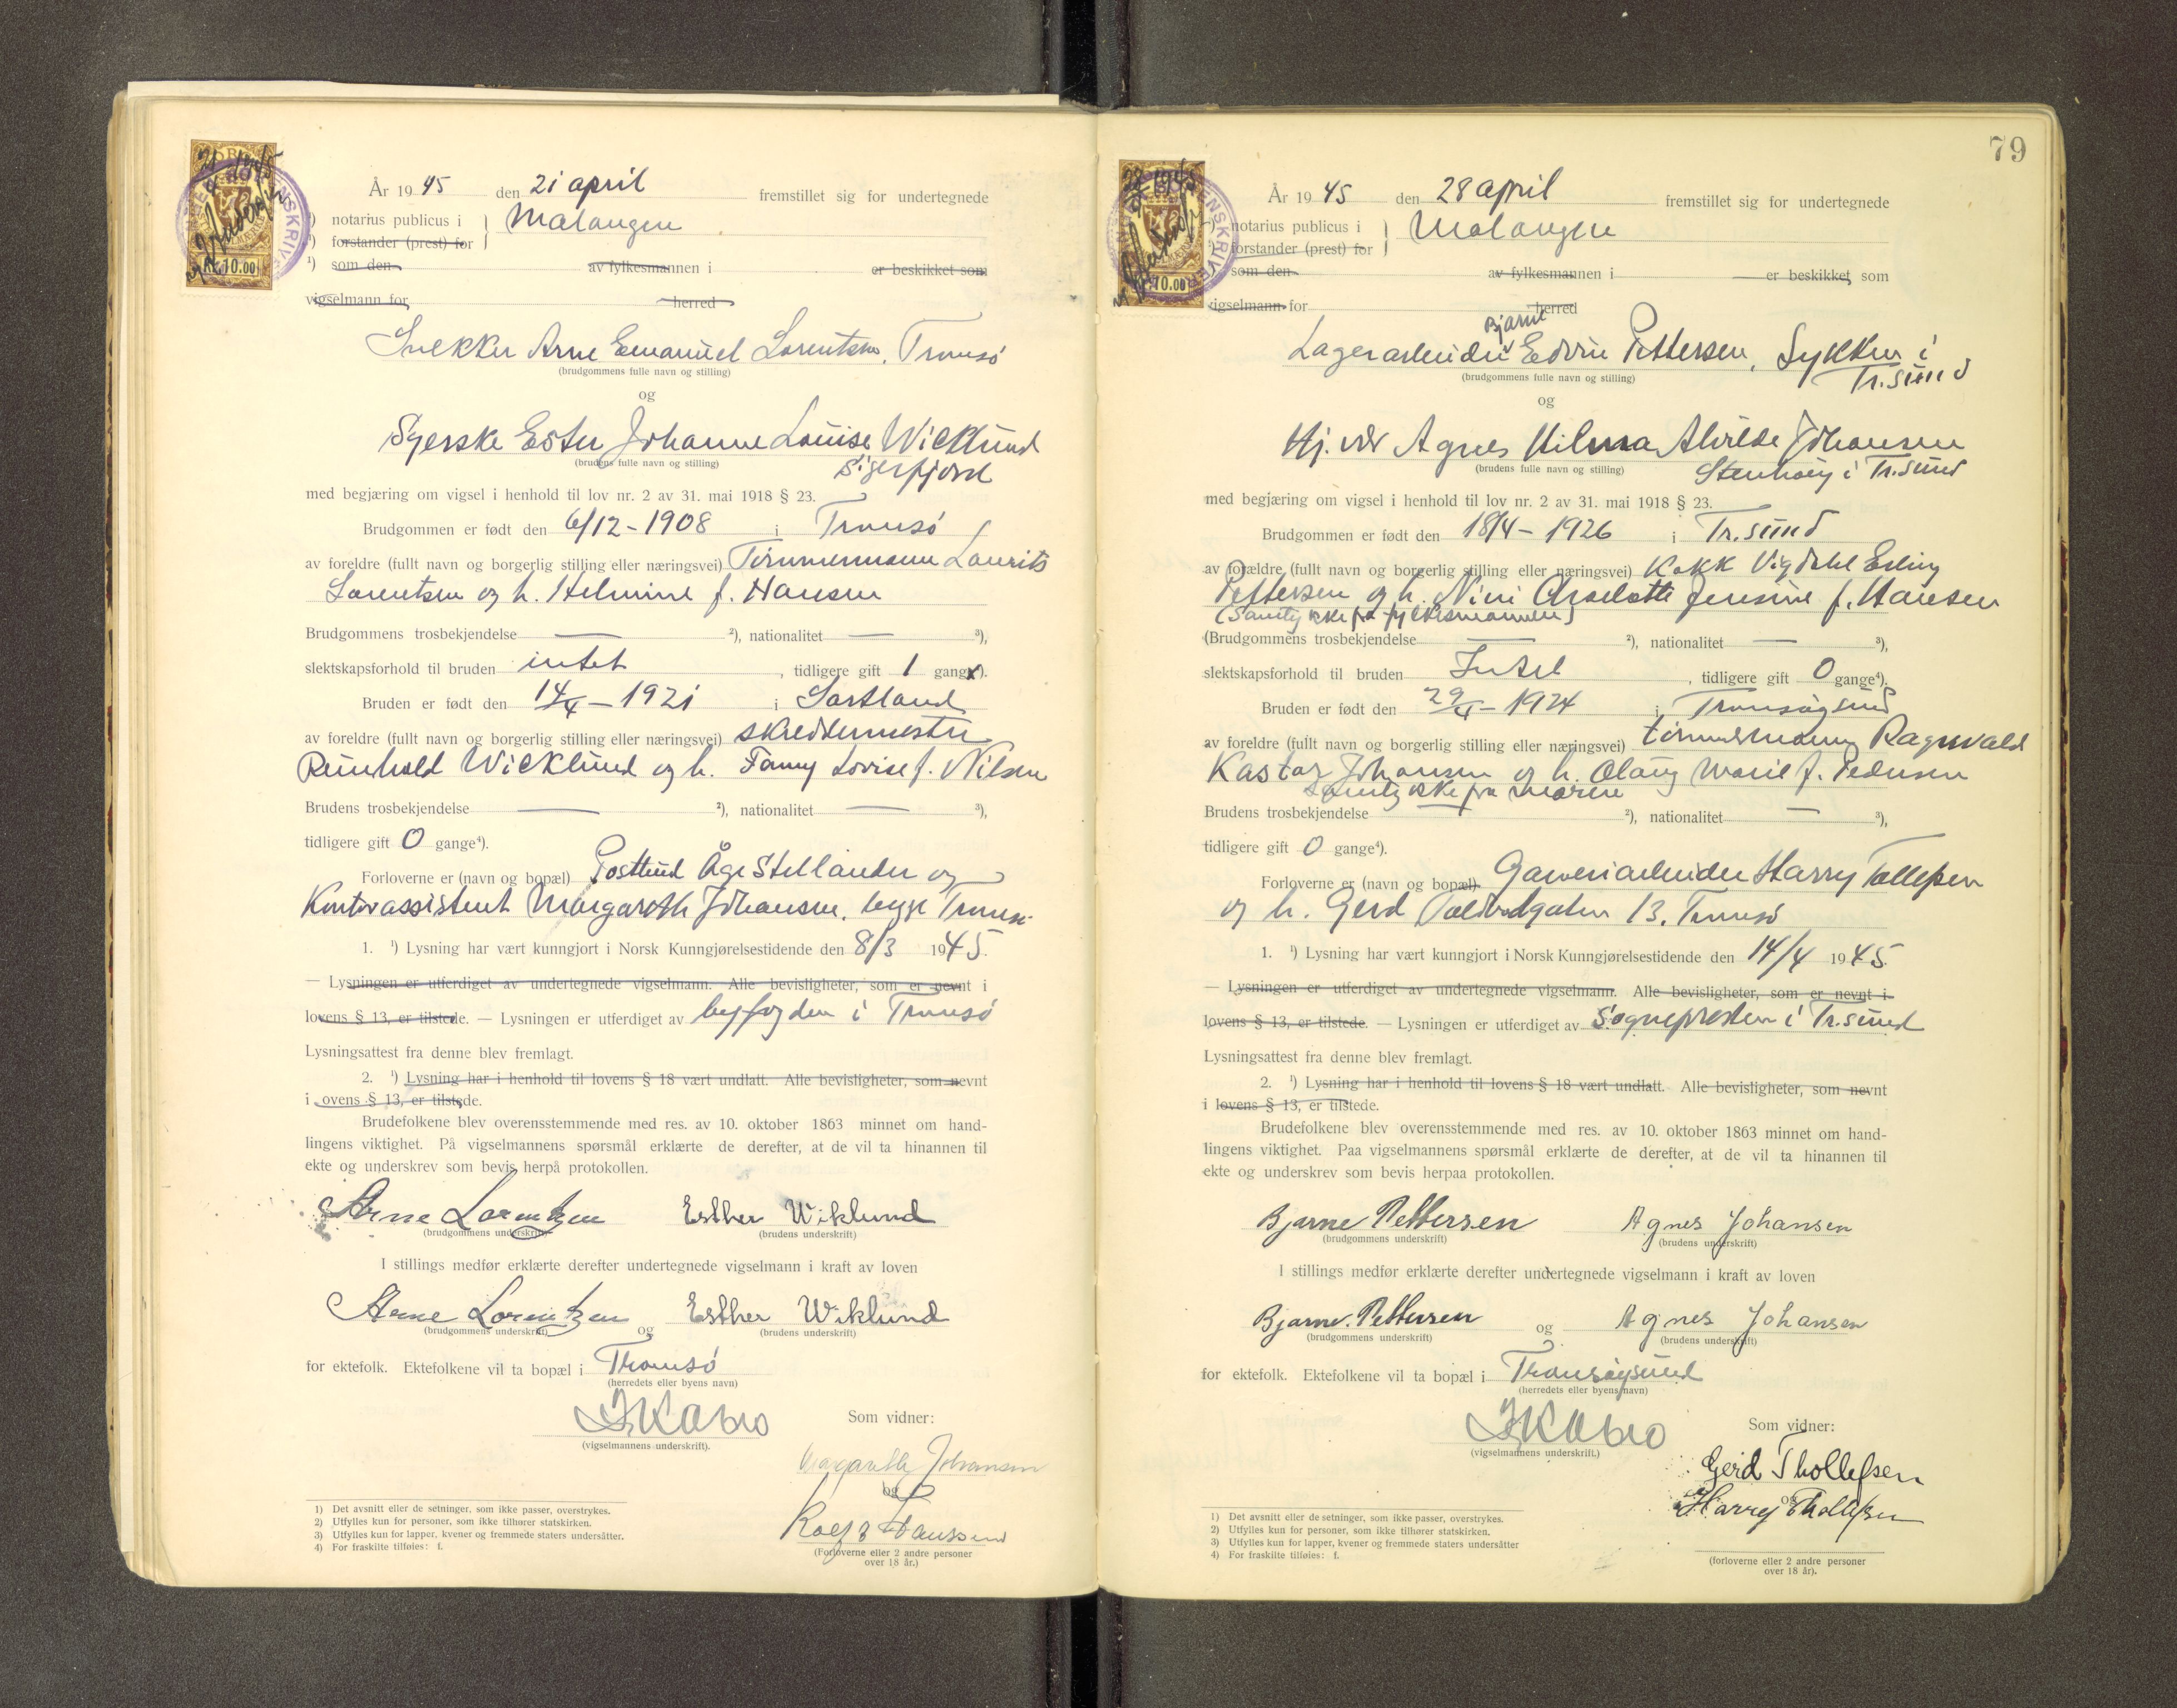 År 1945 den 21 april fremstillet sig for undertegnede
¹) notarius publicus i } Malangen
¹) forstander (prest) for
¹) som den av fylkesmannen i er beskikket som
vigselmann for herred
Snekker Arne Emanuel Lorentsen, Tromsö
(brudgommens fulle navn og stilling)
og
Syerske Ester Johanne Louise Wicklund
(brudens fulle navn og stilling)
Sigerfjord
med begjæring om vigsel i henhold til lov nr. 2 av 31. mai 1918 § 23.
Brudgommen er født den 6/12-1908 i Tromsö
av foreldre (fullt navn og borgerlig stilling eller næringsvei) Tömmermann Laurits
Lorentsen og h. Helmine f. Hansen
Brudgommens trosbekjendelse — ²), nationalitet — ³),
slektskapsforhold til bruden intet, tidligere gift 1 gang⁴).
Bruden er født den 14/4-1921 i Sortland
av foreldre (fullt navn og borgerlig stilling eller næringsvei) skreddermester
Reinhold Wicklund og h. Fanny Lovise f. Nilsen
Brudens trosbekjendelse — ²), nationalitet — ³),
tidligere gift 0 gange⁴).
Forloverne er (navn og bopæl) Postbud Åge Stellander og
Kontorassistent Margareth Johansen, begge Tromsö
1. ¹) Lysning har vært kunngjort i Norsk Kunngjørelsestidende den 8/3 1945.
— Lysningen er utferdiget av undertegnede vigselmann. Alle bevisligheter, som er nevnt i
lovens § 13, er tilstede. — Lysningen er utferdiget av byfogden i Tromsö
Lysningsattest fra denne blev fremlagt.
2. ¹) Lysning har i henhold til lovens § 18 vært undlatt. Alle bevisligheter, som nevnt
i ovens § 13, er tilstede.
Brudefolkene blev overensstemmende med res. av 10. oktober 1863 minnet om hand-
lingens viktighet. På vigselmannens spørsmål erklærte de derefter, at de vil ta hinannen til
ekte og underskrev som bevis herpå protokollen.
Arne Lorentzen Esther Wiklund
(brudgommens underskrift) (brudens underskrift)
I stillings medfør erklærte derefter undertegnede vigselmann i kraft av loven
Arne Lorentzen og Esther Wiklund
(brudgommens underskrift) (brudens underskrift)
for ektefolk. Ektefolkene vil ta bopæl i Tromsö
(herredets eller byens navn)
Som vidner:
(vigselmannens underskrift).
Margarethe Johansen
og
Hanssen
(Forloverne eller 2 andre personer
over 18 år.)
1) Det avsnitt eller de setninger, som ikke passer, overstrykes.
2) Utfylles kun for personer, som ikke tilhører statskirken.
3) Utfylles kun for lapper, kvener og fremmede staters undersåtter.
4) For fraskilte tilføies: f.
79
År 1945 den 28 april fremstillet sig for undertegnede
¹) notarius publicus i } Malangen
¹) forstander (prest) for
som den av fylkesmannen i er beskikket som
vigselmann for herred
Bjarne
Lagerarbeider Edvin Pettersen, Sykken i
(brudgommens fulle navn og stilling)
Tr.sund
og
Hj.vær Agnes Hilma Alvilde Johansen
(brudens fulle navn og stilling)
Stenhaug i Tr.sund
med begjæring om vigsel i henhold til lov nr. 2 av 31. mai 1918 § 23.
Brudgommen er født den 18/4-1926 i Tr.sund
av forældre (fullt navn og borgerlig stilling eller næringsvei) Kokk Vigdahl Erling
Pettersen og h. Nini Charlotte Jensine f. Hansen
(Samtykke fra fylkesmannen)
(Brudgommens trosbekjendelse ²), nationalitet — ³),
slektskapsforhold til bruden Intet, tidligere gift 0 gange⁴).
Bruden er født den 29/4-1924 i Tromsöysund
av foreldre (fullt navn og borgerlig stilling eller næringsvei) tömmermann Ragnvald
Kastor Johansen og h. Olaug Marie f. Pedersen
Samtykke fra moren
Brudens trosbekjendelse ²), nationalitet — ³),
tidligere gift 0 gange⁴).
Forloverne er (navn og bopæl) Garveriarbeider Harry Tollefsen
og h. Gerd Toldbodgaten 13, Tromsö
1. ¹) Lysning har vært kunngjort i Norsk Kunngjørelsestidende den 14/4 1945.
— Lysningen er utferdiget av undertegnede vigselmann. Alle bevisligheter, som er nevnt i
lovens § 13, er tilstede. — Lysningen er utferdiget av Sognepresten i Tr.sund
Lysningsattest fra denne blev fremlagt.
2. ¹) Lysning har i henhold til lovens § 18 vært undlatt. Alle bevisligheter, som nevnt
i lovens § 13, er tilstede.
Brudefolkene blev overensstemmende med res. av 10. oktober 1863 minnet om hand-
lingens viktighet. Paa vigselmannens spørsmål erklærte de derefter, at de vil ta hinannen til
ekte og underskrev som bevis herpaa protokollen.
Bjarne Pettersen Agnes Johansen
(brudgommens underskrift) (brudens underskrift)
I stillings medfør erklærte derefter undertegnede vigselmann i kraft av loven
Bjarne Pettersen og Agnes Johansen
(brudgommens underskrift) (brudens underskrift)
for ektefolk. Ektefolkene vil ta bopæl i Tromsöysund
(herredets eller byens navn)
Som vidner:
(vigselmannens underskrift.)
Gerd Thollefsen
og
Harry Thollefsen
(forloverne eller 2 andre personer
over 18 år).
1) Det avsnitt eller de setninger, som ikke passer, overstrykes.
2) Utfylles kun for personer, som ikke tilhører statskirken.
3) Utfylles kun for lapper, kvener og fremmede staters undersåtter
4) For fraskilte tilføies: f.